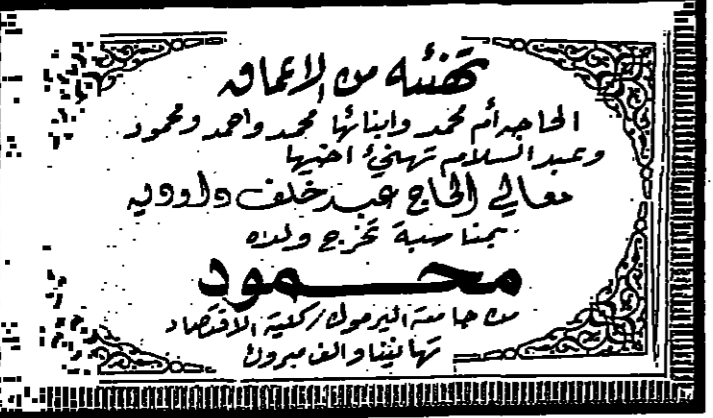 تهنئه من الاعماق
الحاجه أم محمد وابنائها محمد واحمد ومحمود
وعبد السلام تهنئ اخيها
معالي الحاج عيد خلف داوديه
بمناسبة تخرج ولده
محمود
من جامعة اليرموك / كلية الاقتصاد
تهانينا والف مبروك